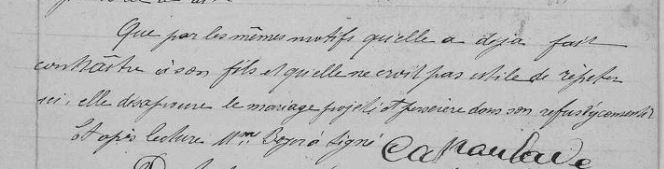 Que par les mêmes motifs qu'elle a déja fait
connaître à son fils et qu'elle ne croit pas utile de répéter
ici, elle désaprouve le mariage projeté et persévère dans son refus d'y consentir
Et après lecture Mme a signé